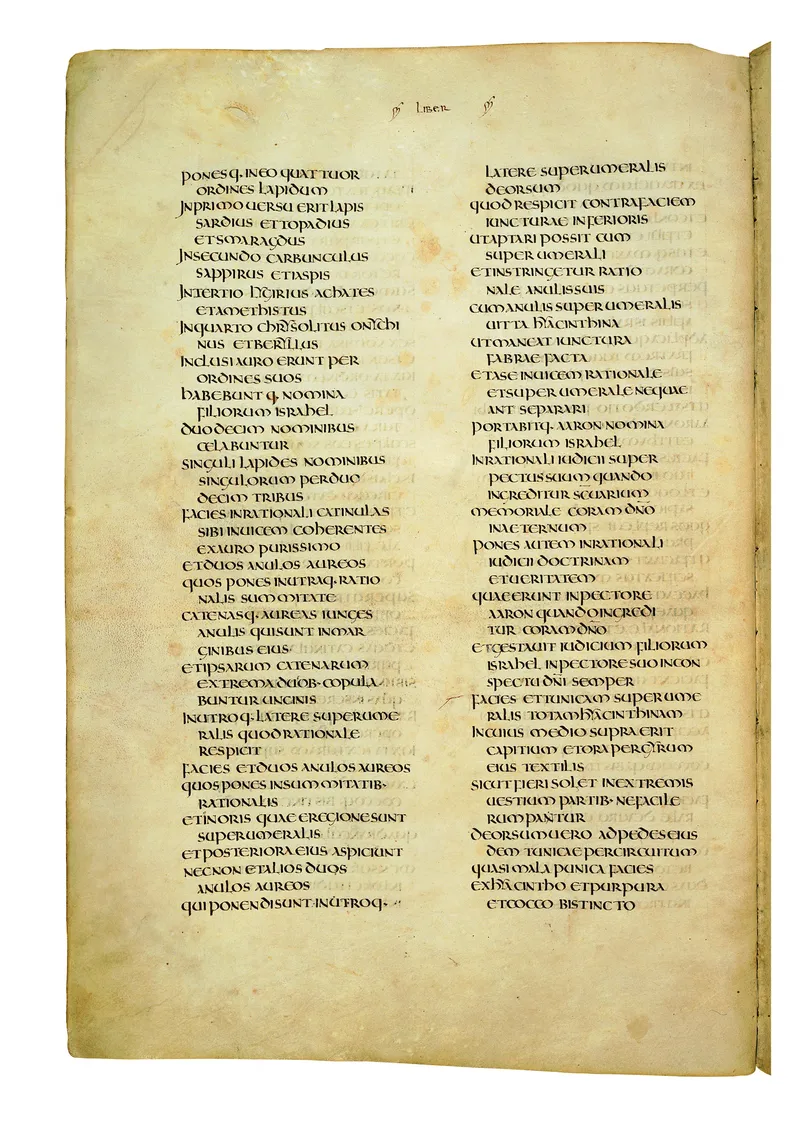 LIBER
PONESQ· INEO QUATTUOR
ORDINES LAPIDUM
INPRIMO UERSU ERIT LAPIS
SARDIUS ET TOPADIUS
ET SMARAGDUS
INSECUNDO CARBUNCULUS
SAPPIRUS ET IASPIS
INTERTIO LYGIRIUS ACHATES
ET AMETHISTUS
INQUARTO CHRYSOLITUS ONYCHI
NUS ET BERYLLUS
INCLUSI AURO ERUNT PER
ORDINES SUOS
HABEBUNTQ· NOMINA
FILIORUM ISRAHEL
DUODECIM NOMINIBUS
CELABUNTUR
SINGULI LAPIDES NOMINIBUS
SINGULORUM PER DUO
DECIM TRIBUS
FACIES INRATIONALI CATINULAS
SIBI INUICEM COHERENTES
EX AURO PURISSIMO
ET DUOS ANULOS AUREOS
QUOS PONES INUTRAQ· RATIO
NALIS SUMMITATE
CATENASQ· AUREAS IUNGES
ANULIS QUI SUNT INMAR
GINIBUS EIUS
ET IPSARUM CATENARUM
EXTREMA DUOB· COPULA
BUNTUR UNCINIS
INUTROQ· LATERE SUPERUME
RALIS QUOD RATIONALE
RESPICIT
FACIES ET DUOS ANULOS AUREOS
QUOS PONES INSUMMITATIB·
RATIONALIS
ET INORIS QUAE EREGIONE SUNT
SUPERUMERALIS
ET POSTERIORA EIUS ASPICIUNT
NECNON ET ALIOS DUOS
ANULOS AUREOS
QUI PONENDI SUNT INUTROQ·
LATERE SUPERUMERALIS
DEORSUM
QUOD RESPICIT CONTRA FACIEM
IUNCTURAE INFERIORIS
UT APTARI POSSIT CUM
SUPERUMERALI
ET INSTRINGETUR RATIO
NALE ANULIS SUIS
CUM ANULIS SUPERUMERALIS
UITTA HYACINTHINA
UT MANEAT IUNCTURA
FABRAE FACTA
ET ASE INUICEM RATIONALE
ET SUPERUMERALE NEQUAE
ANT SEPARARI
PORTABITQ· AARON NOMINA
FILIORUM ISRAHEL
INRATIONALI IUDICII SUPER
PECTUS SUUM QUANDO
INGREDITUR SC̄UARIUM
MEMORIALE CORAM DN̄O
INAETERNUM
PONES AUTEM INRATIONALI
IUDICII DOCTRINAM
ET UERITATEM
QUAE ERUNT INPECTORE
AARON QUANDO INGREDI
TUR CORAM DN̄O
ET GESTAUIT IUDICIUM FILIORUM
ISRAHEL INPECTORE SUO INCON
SPECTU DN̄I SEMPER
FACIES ET TUNICAM SUPERUME
RALIS TOTAM HYACINTHINAM
INCUIUS MEDIO SUPRA ERIT
CAPITIUM ET ORA PER GYRUM
EIUS TEXTILIS
SICUT FIERI SOLET INEXTREMIS
UESTIUM PARTIB· NE FACILE
RUMPANTUR
DEORSUM UERO AD PEDES EIUS
DEM TUNICAE PER CIRCUITUM
QUASI MALA PUNICA FACIES
EX HYACINTHO ET PURPURA
ET COCCO BISTINCTO